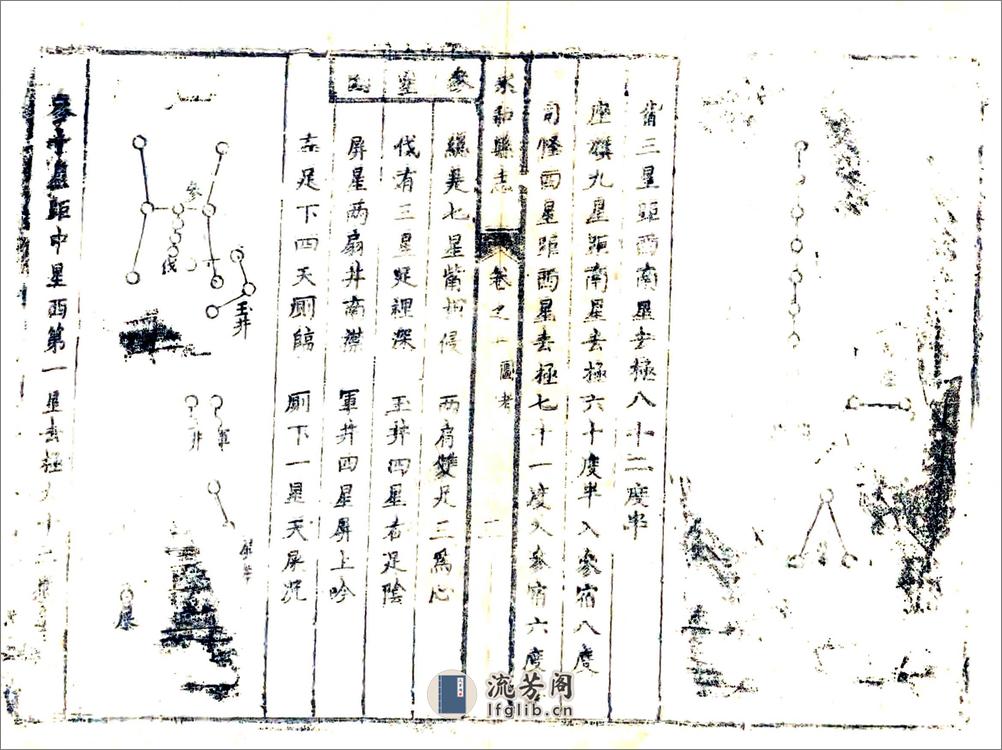 觜三星距西南星去極八十二度半
座旗九星距南星去極六十度半入參宿八度
司怪四星距西星去極七十一度入參宿六度
永和縣志 卷之一 圖考 二
參
總是七星觜相侵 兩肩雙足三爲心
伐有三星足裡深 玉井四星右足陰
屏星兩扇井南襟 軍井四星屏上吟
左足下四天廁臨 廁下一星天屎沉
參
伐
玉井
軍井
屎
參十星距中星西第一星去極九十二
流芳阁
lfglib.cn